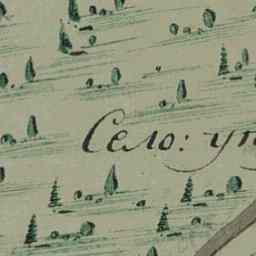 Село: ун